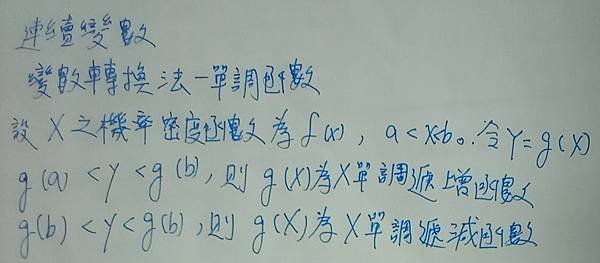 連續變數
變數轉換法-單調函數
設 X 之機率密度函數為 f(x), a<x<b。令Y=g(X)
g(a) <y<g(b), 則 g(X)為X單調遞增函數
g(b) <y<g(b), 則 g(X)為X單調遞減函數